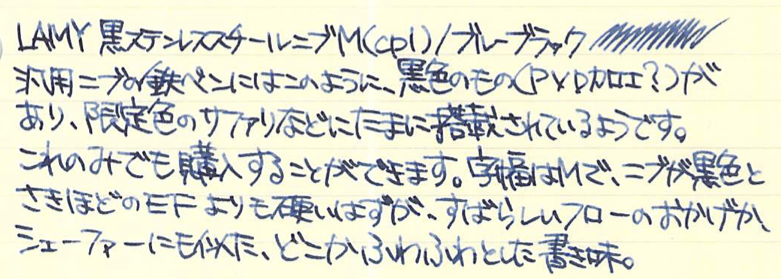 LAMY 黒ステンレススチールニブM(cp1)/ブルーブラック
汎用ニブの鉄ペンにはこのように、黒色のもの(PVD加工?)が
あり、限定色のサファリなどにたまに搭載されているようです。
これのみでも購入することができます。字幅はMで、ニブが黒色と
さきほどのEFよりも硬いはずが、すばらしいフローのおかげか、
シェーファーにも似た、どこかふわふわとした書き味。